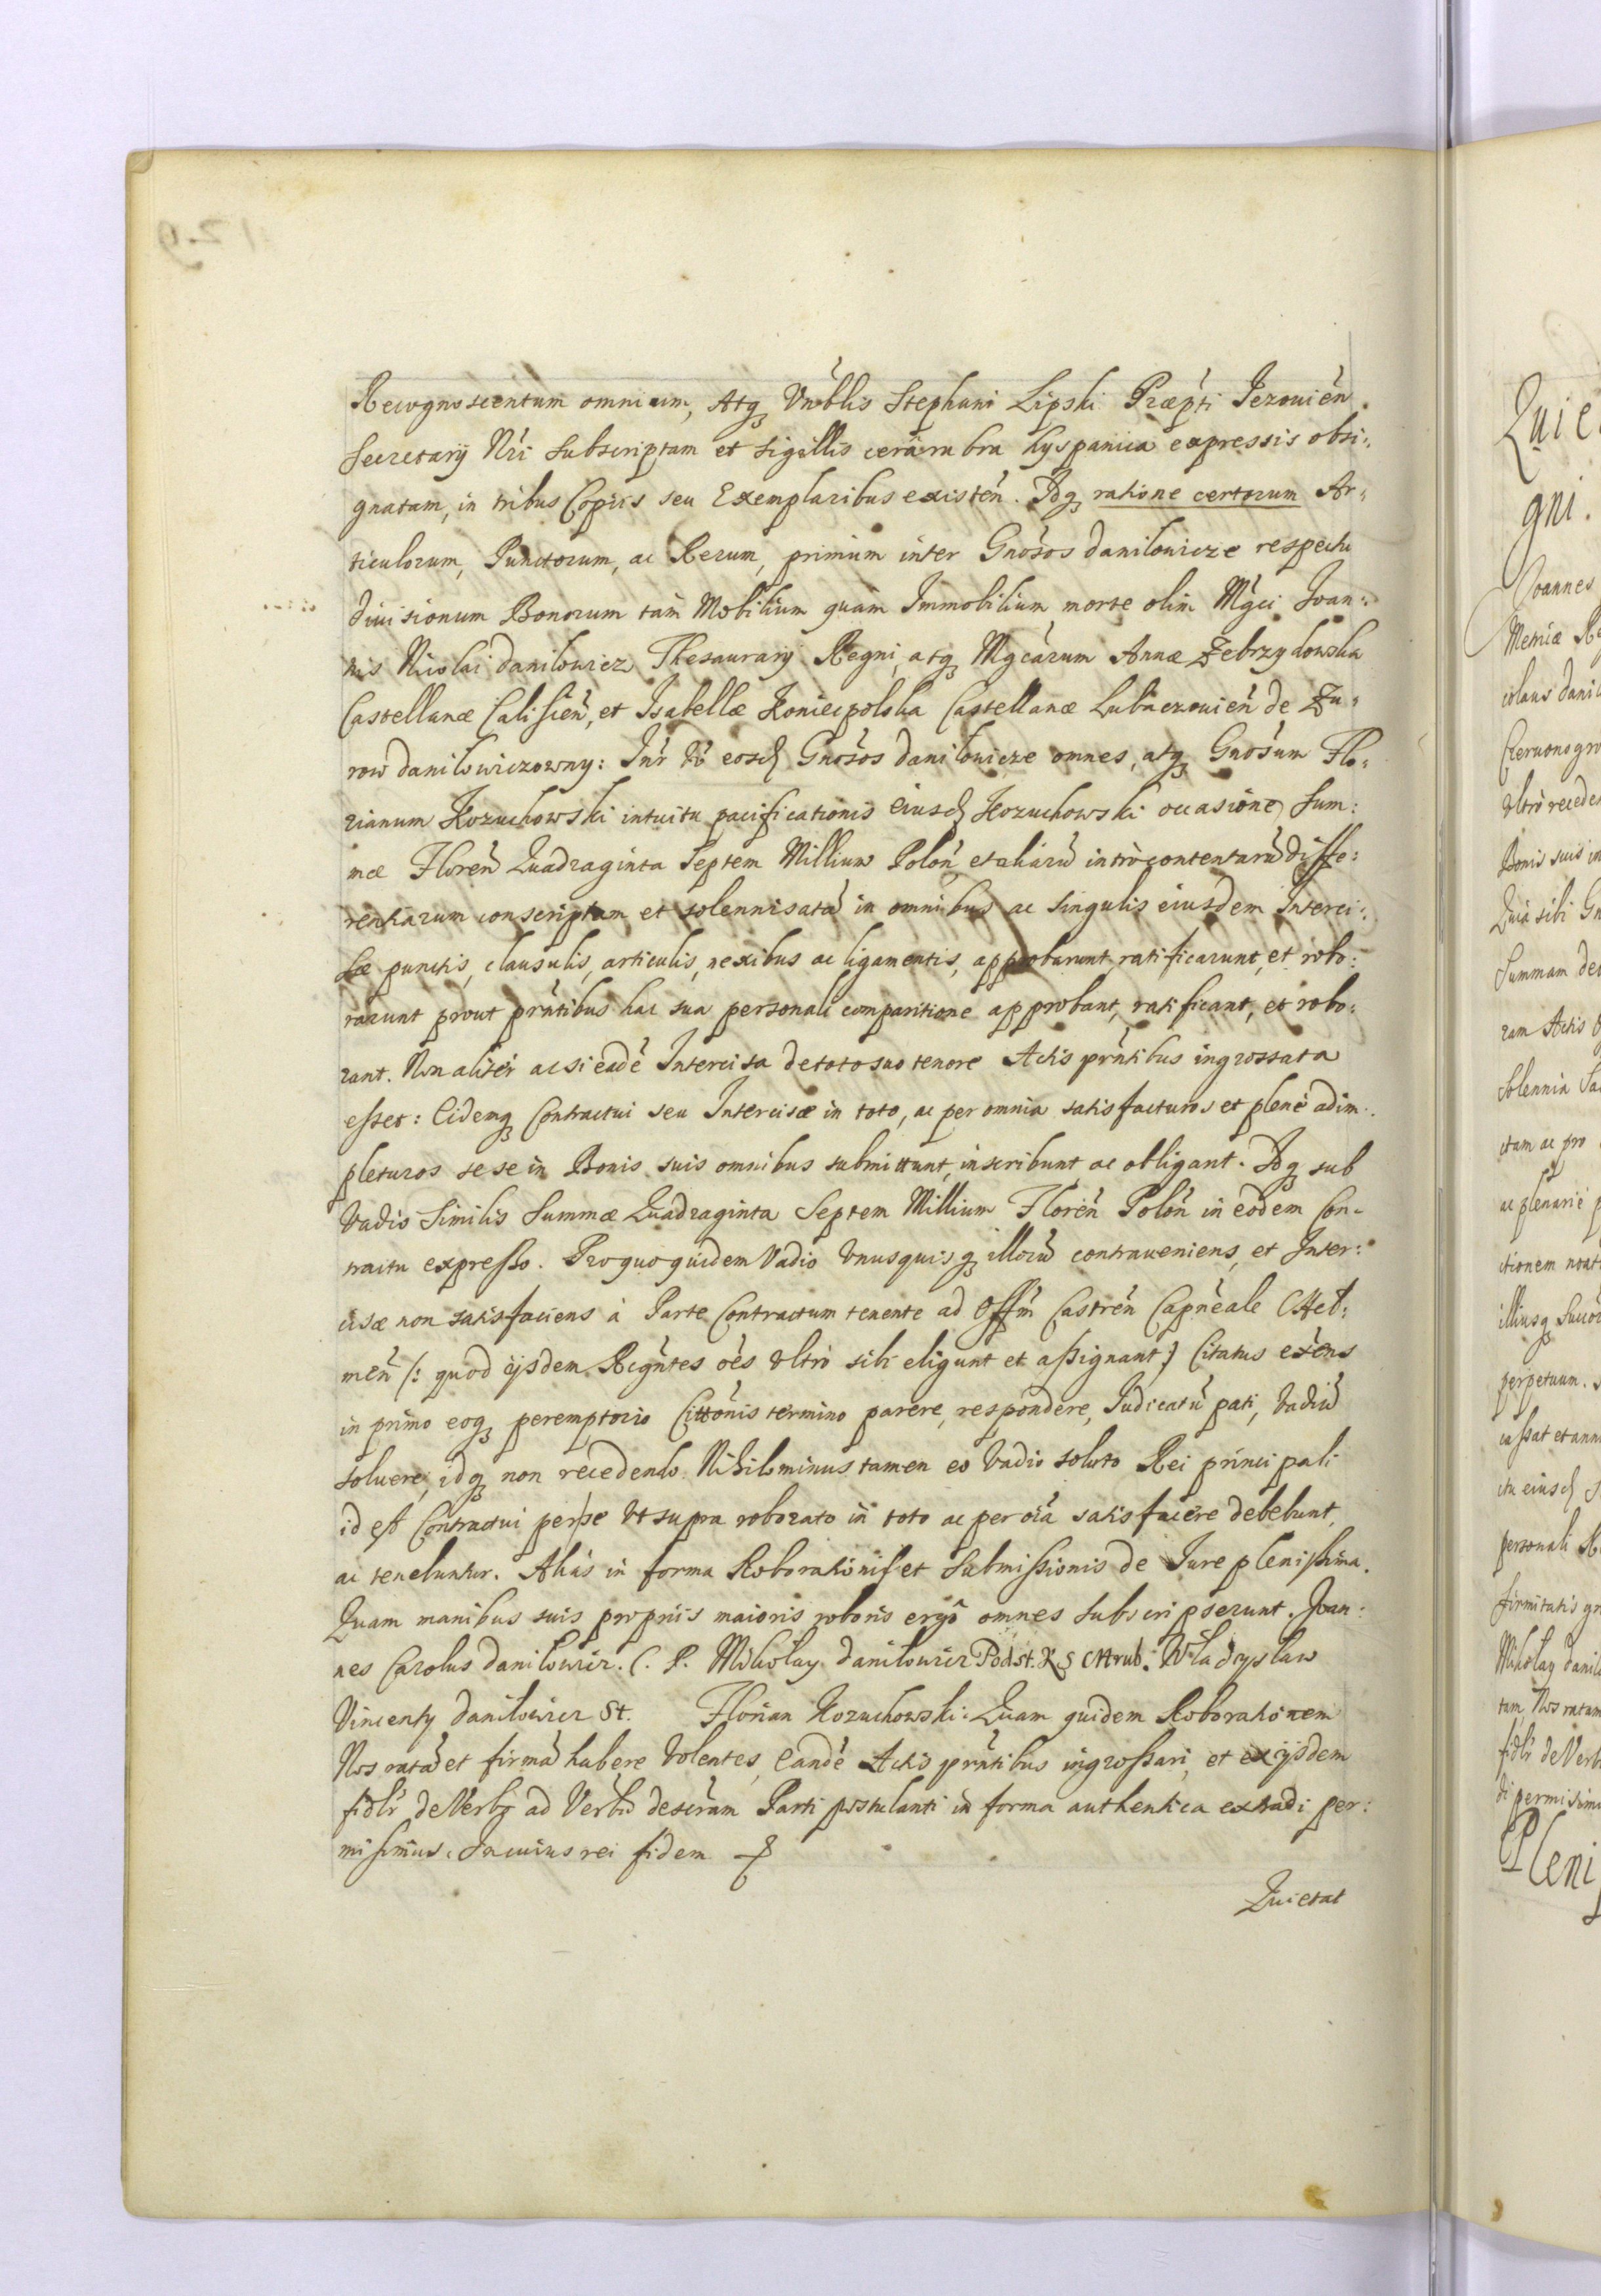 Recognoscentum omnium, Atq Vnoblis Stephani Lipski Præpti Jezouien.
Secretarij Nri Subscriptam et Sigillis cera rubra hyspanica expressis obsi:
gnatam, in tribus Copijs seu Exemplaribus existen. Idq ratione certorum Ar:
ticulorum, Punctorum, ac Rerum, primum inter Gnosos Danilowicze respectu
diuisionum Bonorum tam Mobilium quam Immobilium morte olim Mgci Joan:
nis Nicolai Danilowicz Thesaurarij Regni, atq Mgcarum Annæ Zebrzydowska
Castellanæ Calisien, et Isabellæ Koniecpolska Castellanæ Lubaczouien de Zu:
row Danilowiczowny: Inr Vo eosd Gnosos Danilowicze omnes, atq Gnosum Flo:
rianum Kozuchowski intuitu pacificationis eiusd Kozuchowski occasione Sum:
mæ Floren Quadraginta Septem Millium Polon et aliaru intro contentaru diffe:
rentiarum conscriptam et solennisata in omnibus ac singulis eiusdem Interci:
sæ punctis, clausulis, articulis, nexibus ac ligamentis, approbarunt ratificarunt, et robo:
rarunt prout prntibus hac sua personali comparitione approbant, ratificant, et robo:
rant. Non aliter ac si eade Intercisa de toto suo tenore Actis prntibus ingrossata
esset: Eidemq Contractui seu Intercisæ in toto, ac per omnia satisfacturos et plene adim:
pleturos sese in Bonis suis omnibus submittunt, inscribunt ac obligant. Idq sub
Vadio Similis Summæ Quadraginta Septem Millium Floren Polon in eodem Con-
tractu expresso. Pro quo quidem Vadio Vnusquisq illoru contraueniens, et Inter:
cisæ non satisfaciens à Parte Contractum tenente ad Offm Castren Capneale Chel:
men (: quod ijsdem Recgntes oes vltro sibi eligunt et assignant :) Citatus exens
in primo eoq peremptorio Cittonis termino parere, respondere, Judicatu pati, Vadiu
soluere, idq non recedendo Nihilominus tamen eo Vadio soluto Rei principali
id est Contractui per se Vt supra roborato in toto ac per oia satisfacere debebunt,
ac tenebuntur. Alias in forma Roborationis et Submissionis de Jure plenissima.
Quam manibus suis proprijs maioris roboris ergo omnes subscripserunt. Joan:
nes Carolus Danilowicz. C. P. Mikołay Danilowicz Podst. K S Chrub. Władysław
Vincenty Danilowicz St. Florian Kozuchowski. Quam quidem Roborationem
Nos rata et firma habere Volentes, Eande Actis prntibus ingrossari, et ex ijsdem
fidlr de Verbo ad Verbu descram Parti postulanti in forma authentica extradi per:
misimus. In cuius rei fidem
Quietat
129
Quie
gni.
Joannes
Memiæ Re
colaus Dani
Czeruonogro
vltro recede
Bonis suis in
Quia sibi Gn
Summam de
ram Actis
Solennia Sa
ctam ac pro
ac plenarie p
ctionem
illiusq Succo
perpetuum.
cassat et ann
ctu eiusd S
personali R
firmitatis
Mikołay Danil
tam Nos ratam
fidlr de Verb
di permisimu
Pleni